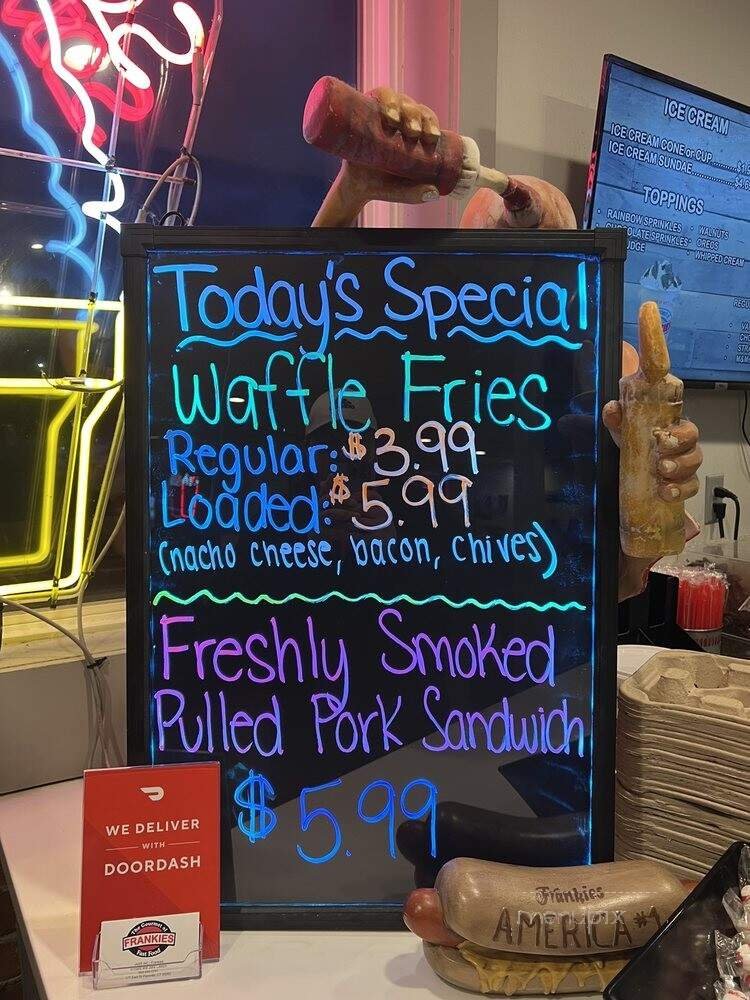 Today's Special
Waffle Fries
Regular: $3.99
Loaded: $5.99
(nacho cheese, bacon, chives)
Freshly Smoked
Pulled Pork Sandwich
$5.99
ICE CREAM
ICE CREAM CONE or CUP
ICE CREAM SUNDAE
TOPPINGS
RAINBOW SPRINKLES
WALNUTS
SPRINKLES
OREOS
WHIPPED CREAM
WE DELIVER
WITH
DOORDASH
The Gourmet of
FRANKIES
Fast Food
Frankies
AMERICA #1